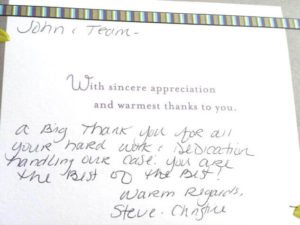 John & Team-
With sincere appreciation
and warmest thanks to you.
A Big Thank you for all
your hard work & Dedication
handling our case. you are
the Best of the Best!
Warm Regards,
Steve - Christine